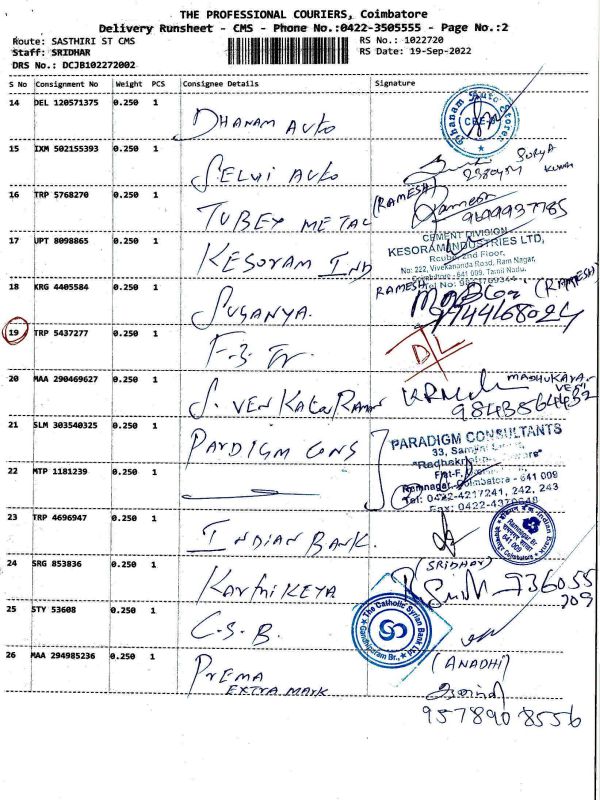 THE PROFESSIONAL COURIERS, Coimbatore
Delivery Runsheet - CMS - Phone No.:0422-3505555 - Page No.:2
Route: SASTHIRI ST CMS
RS No.: 1022720
Staff: SRIDHAR
RS Date: 19-Sep-2022
DRS No.: DCJB102272002
S No Consignment No Weight PCS Consignee Details Signature
14 DEL 120571375 0.250 1 DHANAM AUTO
Dhanam Auto Stores
CBE
15 IXM 502155393 0.250 1 SELVI AUTO
SURYA
16 TRP 5768270 0.250 1 TUBEY METAL
(RAMESH) Ramesh
17 UPT 8098865 0.250 1 KESORAM IND
CEMENT DIVISION
KESORAM INDUSTRIES LTD,
2nd Floor,
No: 222, Vivekananda Road, Ram Nagar,
Coimbatore - 641 009, Tamil Nadu.
18 KRG 4405584 0.250 1 SUGANYA.
RAMESH (RAMESH)
19 TRP 5437277 0.250 1
D/L
20 MAA 290469627 0.250 1 S. VENKATARAMAN
21 SLM 303540325 0.250 1 PARDIGM CONS
PARADIGM CONSULTANTS
22 MTP 1181239 0.250 1
Ramnagar, Coimbatore - 641 009
Tel: 0422-4217241, 242, 243
23 TRP 4696947 0.250 1 INDIAN BANK.
Indian Bank
Ramnagar Br
641 009
24 SRG 853836 0.250 1 KARTHIKEYA
(SRIDHAR)
25 STY 53608 0.250 1 C.S.B.
The Catholic Syrian Bank Ltd
Gandhipuram Br.,
26 MAA 294985236 0.250 1 PREMA
EXTRA MARK
(ANADHI)
9578908556